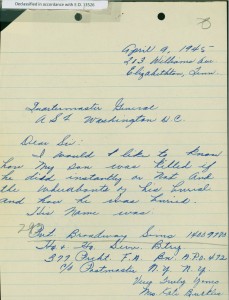 Declassified in accordance with E.O. 13526
April 9, 1945
213 Williams Ave
Elizabethton, Tenn.
Quartermaster General
A S F Washington D.C.
Dear Sir:
I would like to know
how my son was killed if
he died instantly or Not And
the whereabouts of his burial
and how he was buried.
His Name was.
Pvt Broadway Sims
Hq & Hq Serv. Btry
377 Prcht. F.A. Bn. A.P.O. 472
% Postmaster N.Y. N.Y.
Very Truly Yours
Mrs